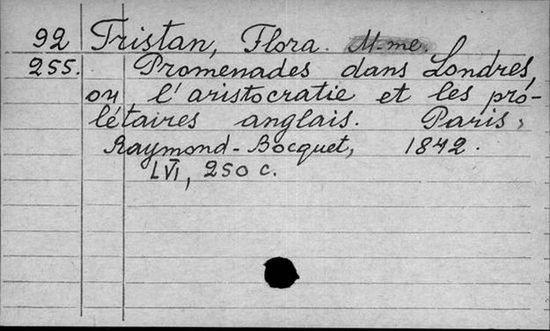 92 Tristan, Flora. M-me.
255. Promenades dans Londres,
ou l'aristocratie et les pro-
létaires anglais. Paris,
Raymond-Bocquet, 1842.
LVI, 250 c.